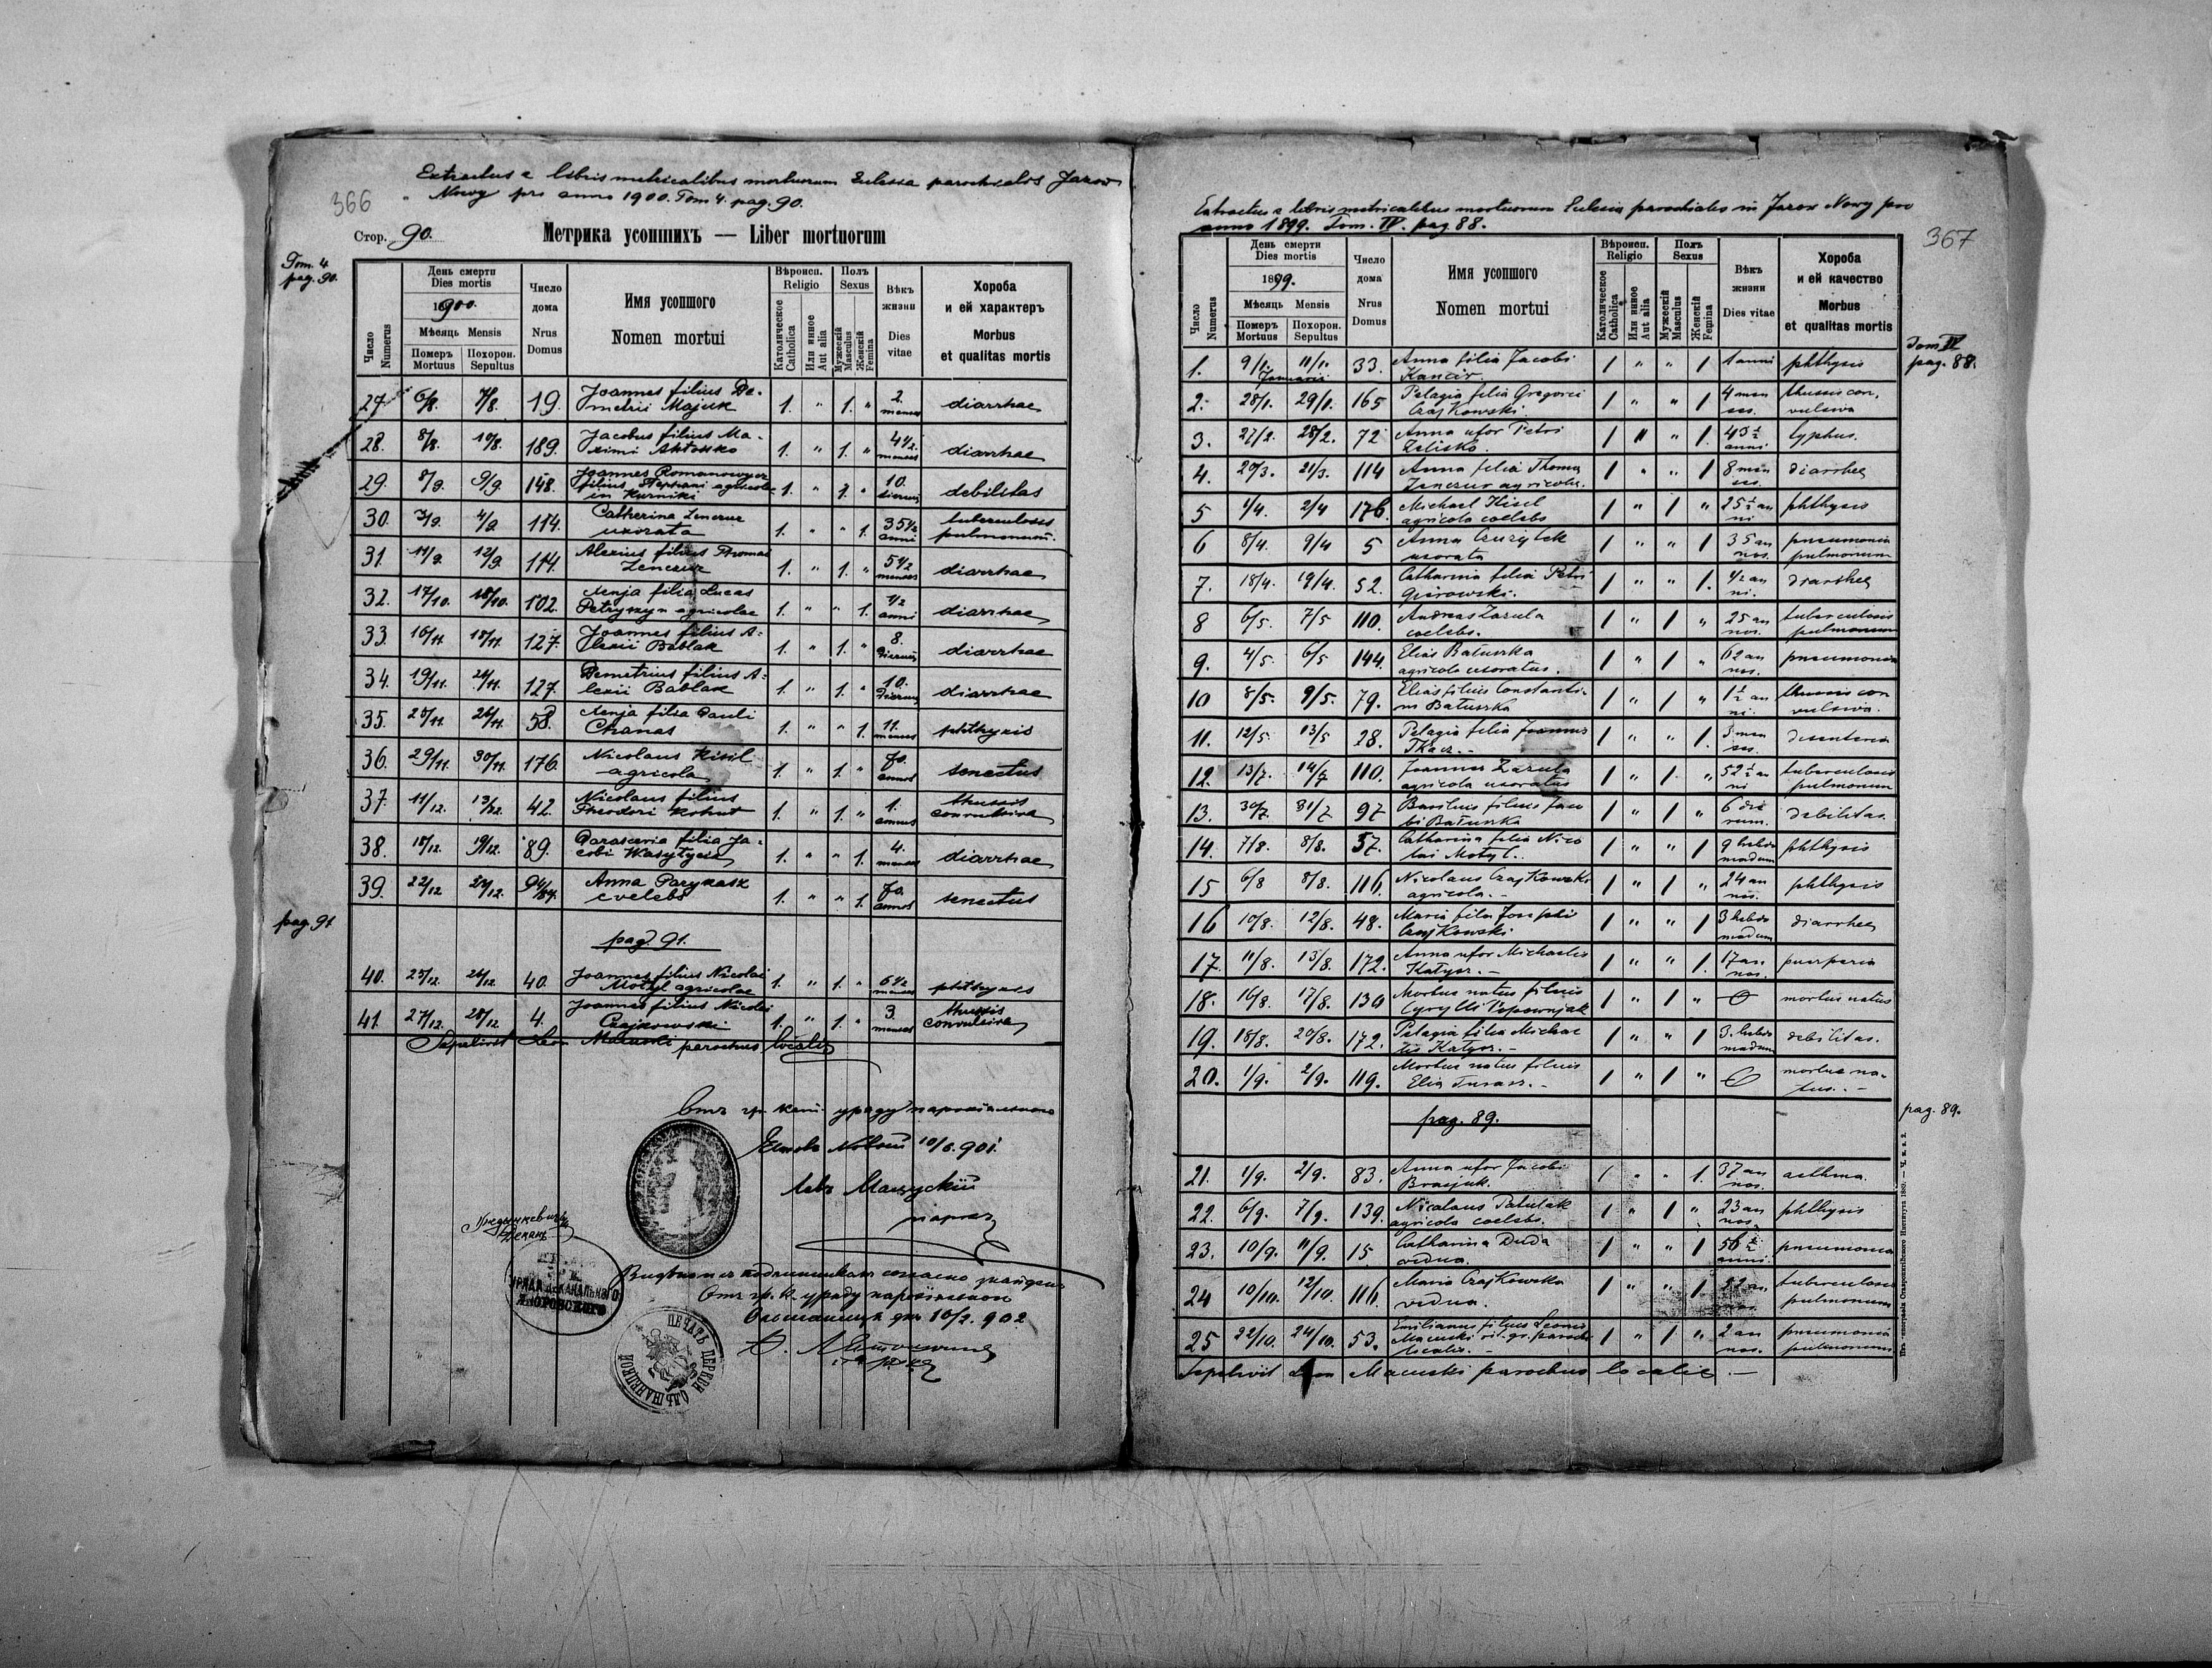 366
Extractus e libris metricalibus mortuorum Eulesia parochialis Jazow
Nowy pro anno 1900. Tom 4. pag. 90.
Стор. 90. Метрика усопшихъ — Liber mortuorum
Tom. 4.
pag. 90.
Число Numerus
День смерти Dies mortis
1900.
Мѣсяць Mensis
Померъ Mortuus
Похорон. Sepultus
Число дома Nrus Domus
Имя усопшого Nomen mortui
Вѣроисп. Religio
Католическое Catholica
Или инное Aut alia
Полъ Sexus
Мужескій Masculus
Женскій Femina
Вѣкъ жизни Dies vitae
Хороба и ей характеръ Morbus et qualitas mortis
27. 6/8. 7/8. 19. Joannes filius De-
metrii Majuk 1. " 1. " 2. menses diarrhae
28. 8/8. 10/8. 189. Jacobus filius Ma-
ximi 1. " 1. " 4 1/2 menses diarrhae
29. 8/9. 9/9. 148. Joannes Romanowycz
filius Stephani agricolae
in Kurniki 1. " 1. " 10. dierum debilitas
30. 3/9. 4/9. 114. Catherina Zenczur
uxorata 1. " " 1. 35 1/2 anni tuberculosis
pulmonum.
31. 11/9. 12/9. 114. Alexius filius Thomae
Zenczur 1. " 1. " 5 1/2 menses diarrhae
32. 17/10. 18/10. 102. Xenja filia Lucas
Petryszyn agricolae 1. " " 1. 1/2 anni diarrhae
33. 16/11. 18/11. 127. Joannes filius A-
lexii Bablak 1. " 1. " 8. dierum diarrhae
34. 19/11. 127. Demetrius filius A-
lexii Bablak 1. " 1. " 10. dierum diarrhae
35. 25/11. 26/11. 58. Xenja filia Pauli
Chanas 1. " " 1. 11. menses phthysis
36. 29/11. 30/11. 176. Nicolaus Kisil
agricola 1. " 1. " 70. annos senectus
37. 11/12. 13/12. 42. Nicolaus filius
Theodori Kohut 1. " 1. " 1. annus thussis
convulsiva
38. 18/12. 19/12. 89. Parascevia filia Ja-
cobi Wasylycia 1. " " 1. 4. menses diarrhae
39. 22/12 24/12. 94/84. Anna Parykasz
coelebs 1. " " 1. 70 annos senectus
pag. 91
pag. 91.
40. 25/12. 26/12 40. Joannes filius Nicolai
Motyl agricolae 1. " 1. " 6 1/2 menses phthyses
41. 27/12. 28/12 4. Joannes filius Nicolai
Czajkowski 1. " 1. " 3. menses thussis
convulsiva
Sepelivit Leon Macuski parochus localis
Отъ гр. кат. уряду парохіяльного
Язовъ Новый 10/6. 901.
Левъ Мацускій
парох
Декань
УРЯДА ДЕКАНАЛЬНОГО
ЯВОРОВСКОГО
Отъ гр. к. уряду парохіяльного
дня 10/2. 902
ПЕЧАТЬ ЦЕРКВИ ОЛЬШАНИЦКОЙ
367
Extractus e libris metricalibus mortuorum Eulesia parochialis in Jazow Nowy pro
anno 1899. Tom. IV. pag. 88.
Число Numerus
День смерти Dies mortis
1899.
Мѣсяць Mensis
Померъ Mortuus
Похорон. Sepultus
Число дома Nrus Domus
Имя усопшого Nomen mortui
Вѣроисп. Religio
Католическое Catholica
Или инное Aut alia
Полъ Sexus
Мужескій Masculus
Женскій Femina
Вѣкъ жизни Dies vitae
Хороба и ей качество Morbus et qualitas mortis
Tom IV
pag. 88.
1. 9/1. 11/1. Januarii 33. Anna filia Jacobi
Kancir. 1 " " 1 1 anni phthysis
2. 28/1. 29/1. 165 Pelagia filia Gregorii
Czajkowski. 1 " " 1. 4 menses thussis con,
vulsiva
3. 27/2. 28/2. 72 Anna uxor Petri
Zelisko. 1 " " 1. 43 1/2 anni typhus.
4. 20/3. 21/3. 114 Anna filia Thomae
Zenczur agricolae. 1 " " 1. 8 menses diarrhea
5 1/4. 2/4 176. Michael Kisel
agricola coelebs 1 " 1 " 25 1/2 anni phthysis
6 8/4. 9/4 5 Anna
uxorata 1 " " 1 35 annos. pneumonia
pulmonum
7. 18/4. 19/4. 52. Catharina filia Petri
1 " " 1. 1/2 anni. diarrhea
8 6/5. 7/5 110. Andreas Zazula
coelebs. 1 " 1 " 25 annos. tuberculosis
pulmonum
9. 4/5. 6/5 144. Elias Batuszka
agricola uxoratus. 1 " 1 " 62 annos. pneumonia
10 8/5. 9/5. 79. Elias filius Constanti-
ni Batuszka 1 " 1 " 1 1/2 anni. thussis con
vulsiva.
11. 12/5 13/5 28. Pelagia filia Joannis
Tkacz. — 1 " " 1. 5 menses. disenteria
12. 13/7. 14/7 110. Joannes Zazula
agricola uxoratus 1 " 1 " 52 1/2 anni tuberculosis
pulmonum
13. 30/7 31/7 97 Basilius filius Jaco
bi Batuszka 1 " 1 " 6 dierum. debilitas.
14. 7/8. 8/8. 57. Catharina filia Nico
lai Motyl. 1 " " 1 9 hebdomadum phthysis
15 6/8 8/8. 116. Nicolaus Czajkowski
agricola. — 1 " 1 " 24 annos. phthysis
16 10/8. 12/8. 48. Maria filia Josephi
Czajkowski 1 " " 1 3 hebdomadum diarrhea
17. 11/8. 13/8. 172. Anna uxor Michaelis
Katyor. — 1 " " 1. 17 annos. puerperia
18. 16/8. 17/8. 130 Mortus natus filius
Cyrylli Popownjak 1 " 1 " mortus natus
19. 18/8. 20/8. 172. Pelagia filia Michae
lis Katyor. — 1 " " 1 3. hebdomadum debilitas.
20. 1/9. 2/9. 119. Mortus natus filius
Elia Turasz. — 1 " 1 " mortus na-
tus. —
pag. 89.
pag. 89.
21. 1/9. 2/9. 83. Anna uxor Jacobi
1 " " 1. 37 annos. asthma.
22. 6/9. 7/9. 139. Nicolaus Patulak
agricola coelebs. 1 " 1 " 23 annos. phthysis
23. 10/9. 11/9. 15. Catharina Duda
vidua. 1 " " 1 56 1/2 anni. pneumonia
24 10/10. 12/10. 116. Maria Czajkowska
vidua. 1 " " 1. tuberculosis
pulmonum
25 22/10. 24/10. 53. Emilianus filius Leonis
Macuski rit. gr. parochi
localis. — 1 " 1 " 2 annos. pneumonia
pulmonum.
Sepelivit Leon Macuski parochus localis. —